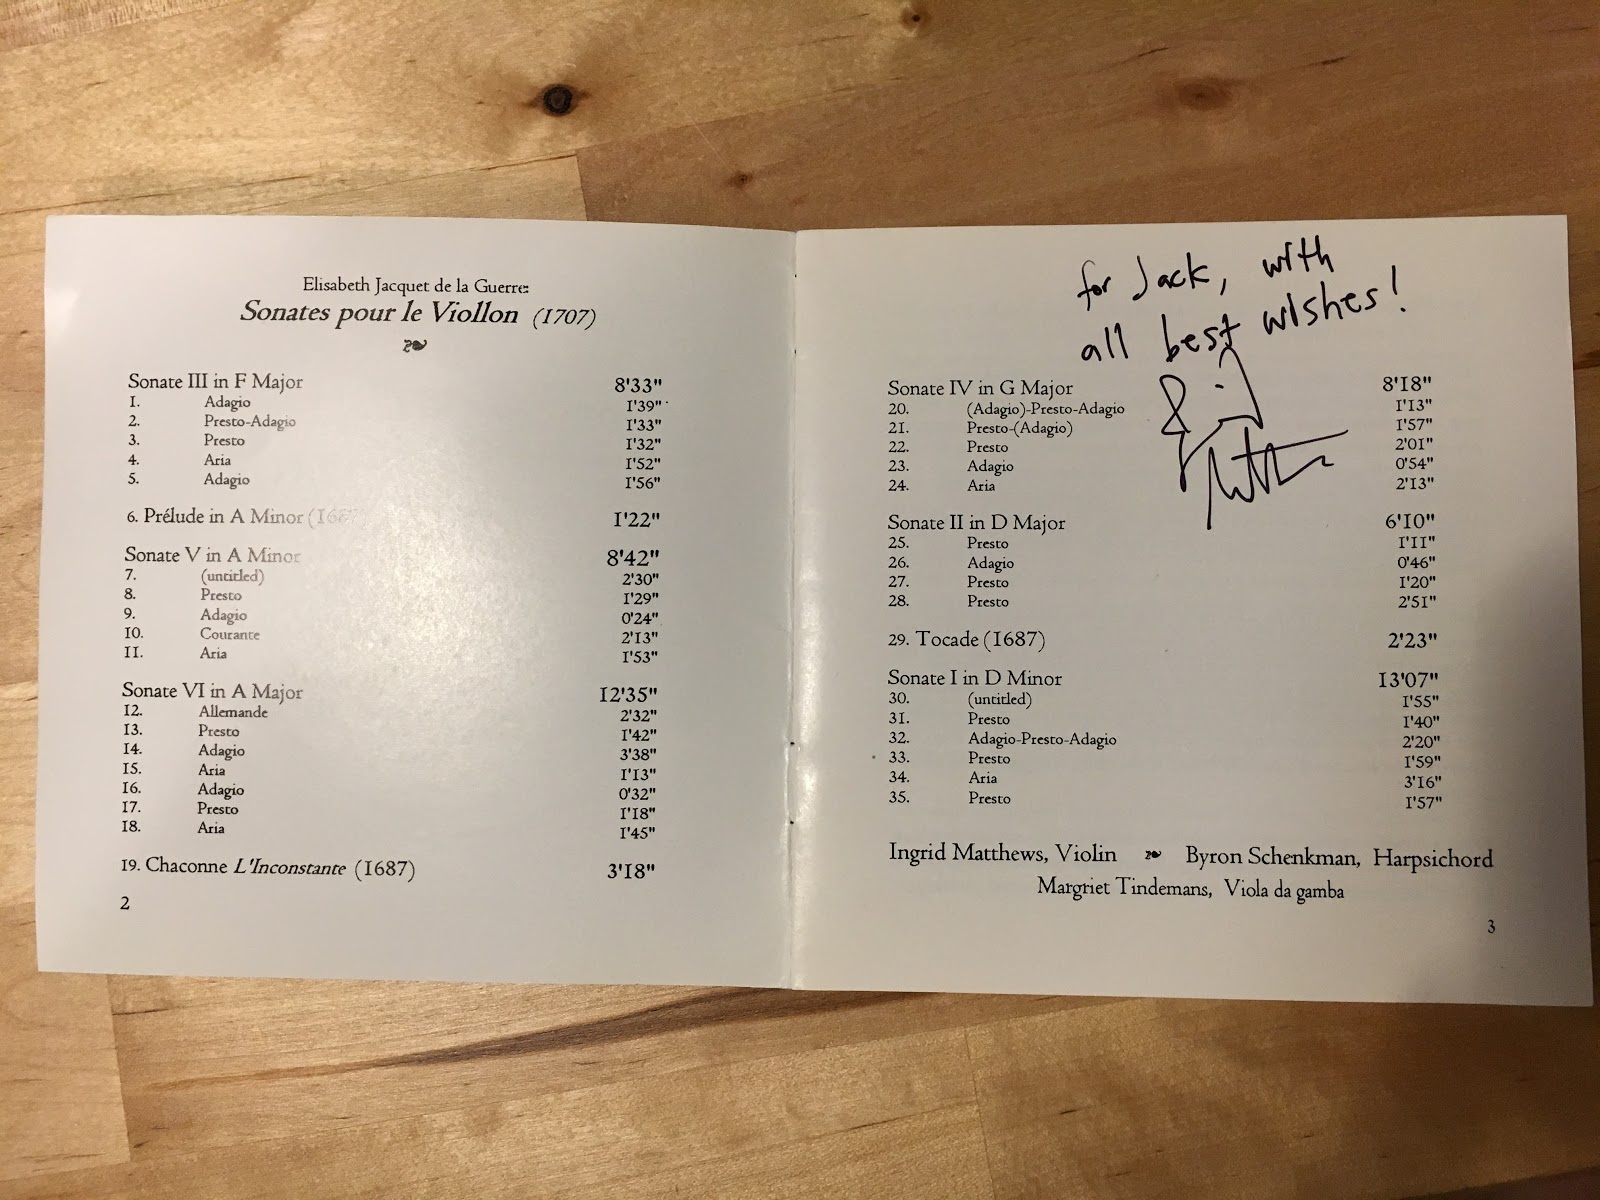 Elisabeth Jacquet de la Guerre:
Sonates pour le Viollon (1707)
Sonate III in F Major 8'33"
1. Adagio 1'39"
2. Presto-Adagio 1'33"
3. Presto 1'32"
4. Aria 1'52"
5. Adagio 1'56"
6. Prélude in A Minor (1687) 1'22"
Sonate V in A Minor 8'42"
7. (untitled) 2'30"
8. Presto 1'29"
9. Adagio 0'24"
10. Courante 2'13"
11. Aria 1'53"
Sonate VI in A Major 12'35"
12. Allemande 2'32"
13. Presto 1'42"
14. Adagio 3'38"
15. Aria 1'13"
16. Adagio 0'32"
17. Presto 1'18"
18. Aria 1'45"
19. Chaconne L'Inconstante (1687) 3'18"
2
for Jack, with
all best wishes!
Sonate IV in G Major 8'18"
20. (Adagio)-Presto-Adagio 1'13"
21. Presto-(Adagio) 1'57"
22. Presto 2'01"
23. Adagio 0'54"
24. Aria 2'13"
Sonate II in D Major 6'10"
25. Presto 1'11"
26. Adagio 0'46"
27. Presto 1'20"
28. Presto 2'51"
29. Tocade (1687) 2'23"
Sonate I in D Minor 13'07"
30. (untitled) 1'55"
31. Presto 1'40"
32. Adagio-Presto-Adagio 2'20"
33. Presto 1'59"
34. Aria 3'16"
35. Presto 1'57"
Ingrid Matthews, Violin Byron Schenkman, Harpsichord
Margriet Tindemans, Viola da gamba
3